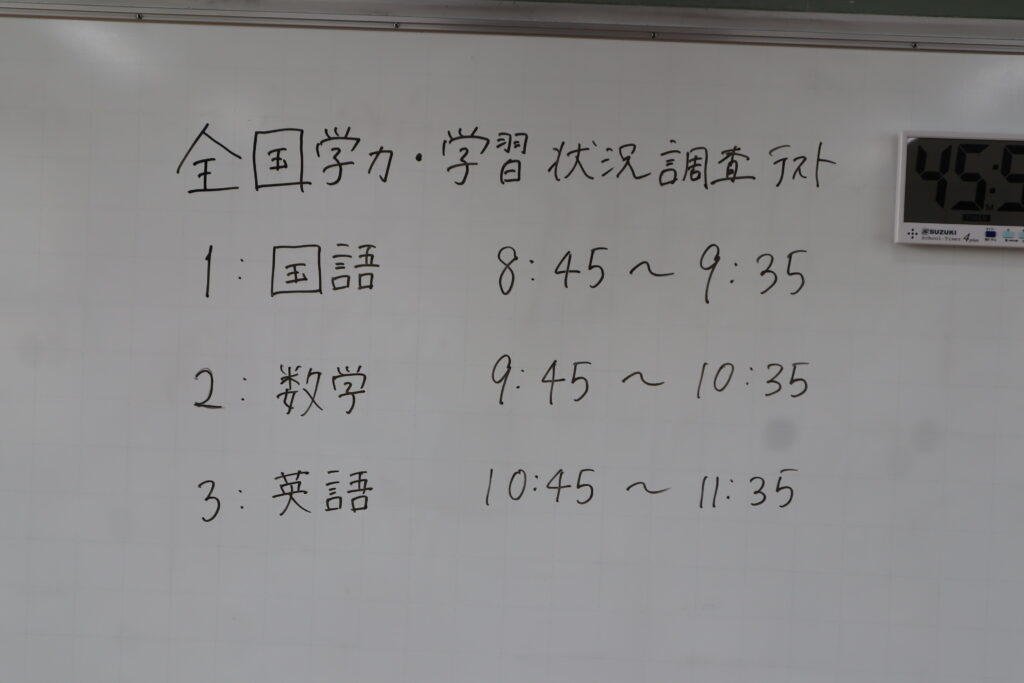 全国学力・学習状況調査テスト
1：国語 8：45 ～ 9：35
2：数学 9：45 ～ 10：35
3：英語 10：45 ～ 11：35
45:5
SUZUKI
School-Timer 4 plus